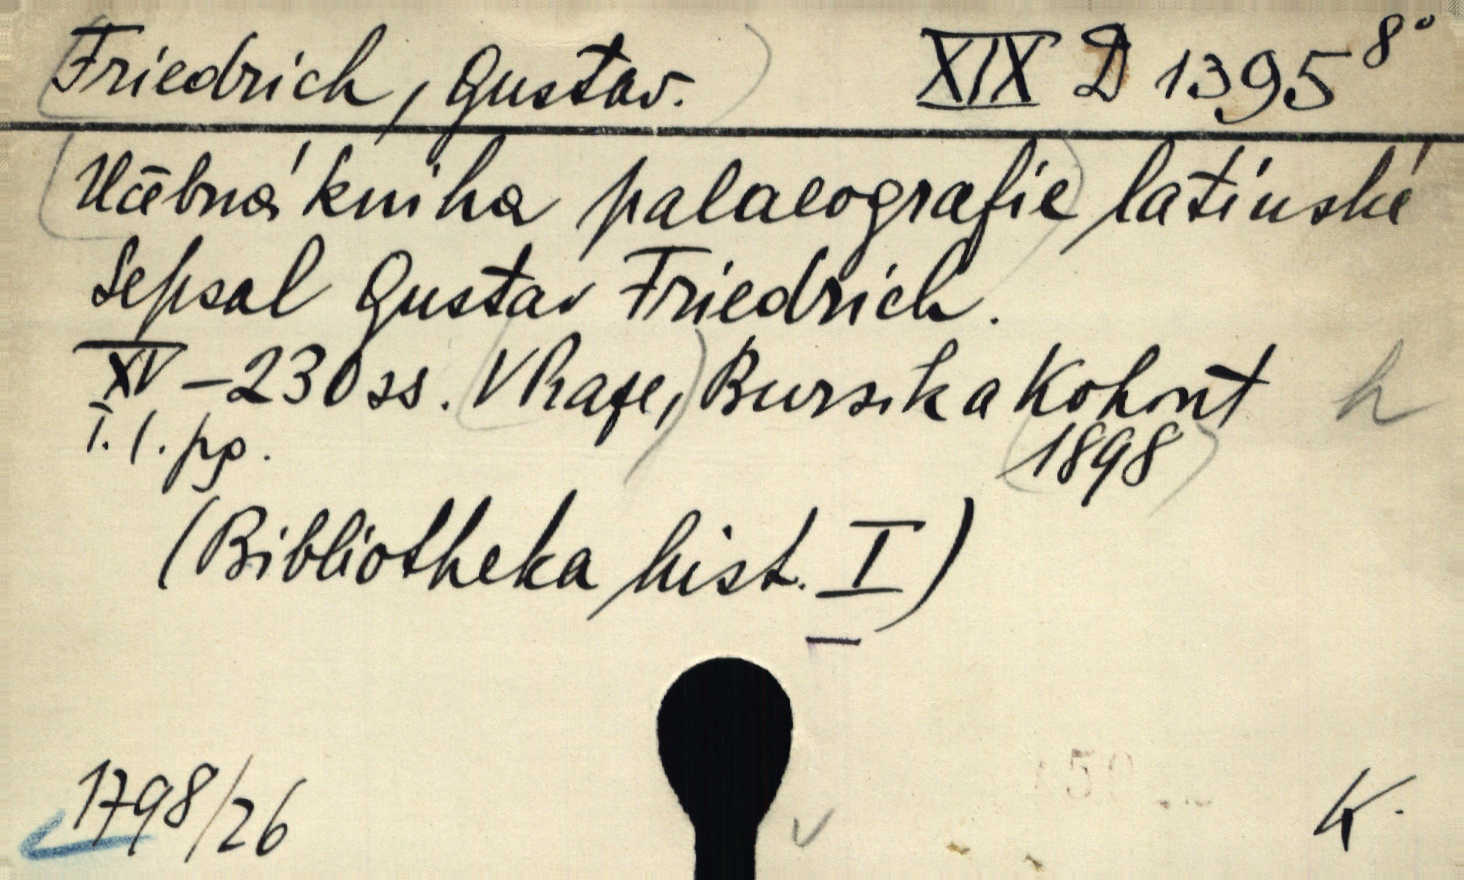 Friedrich, Gustav. XIX D 1395 8°
Učebná kniha palaeografie latinské
Sepsal Gustav Friedrich.
XV – 230 ss. V Praze, Bursík a Kohout h
T. l. pg. 1898
(Bibliotheka hist. I)
1798/26
K.